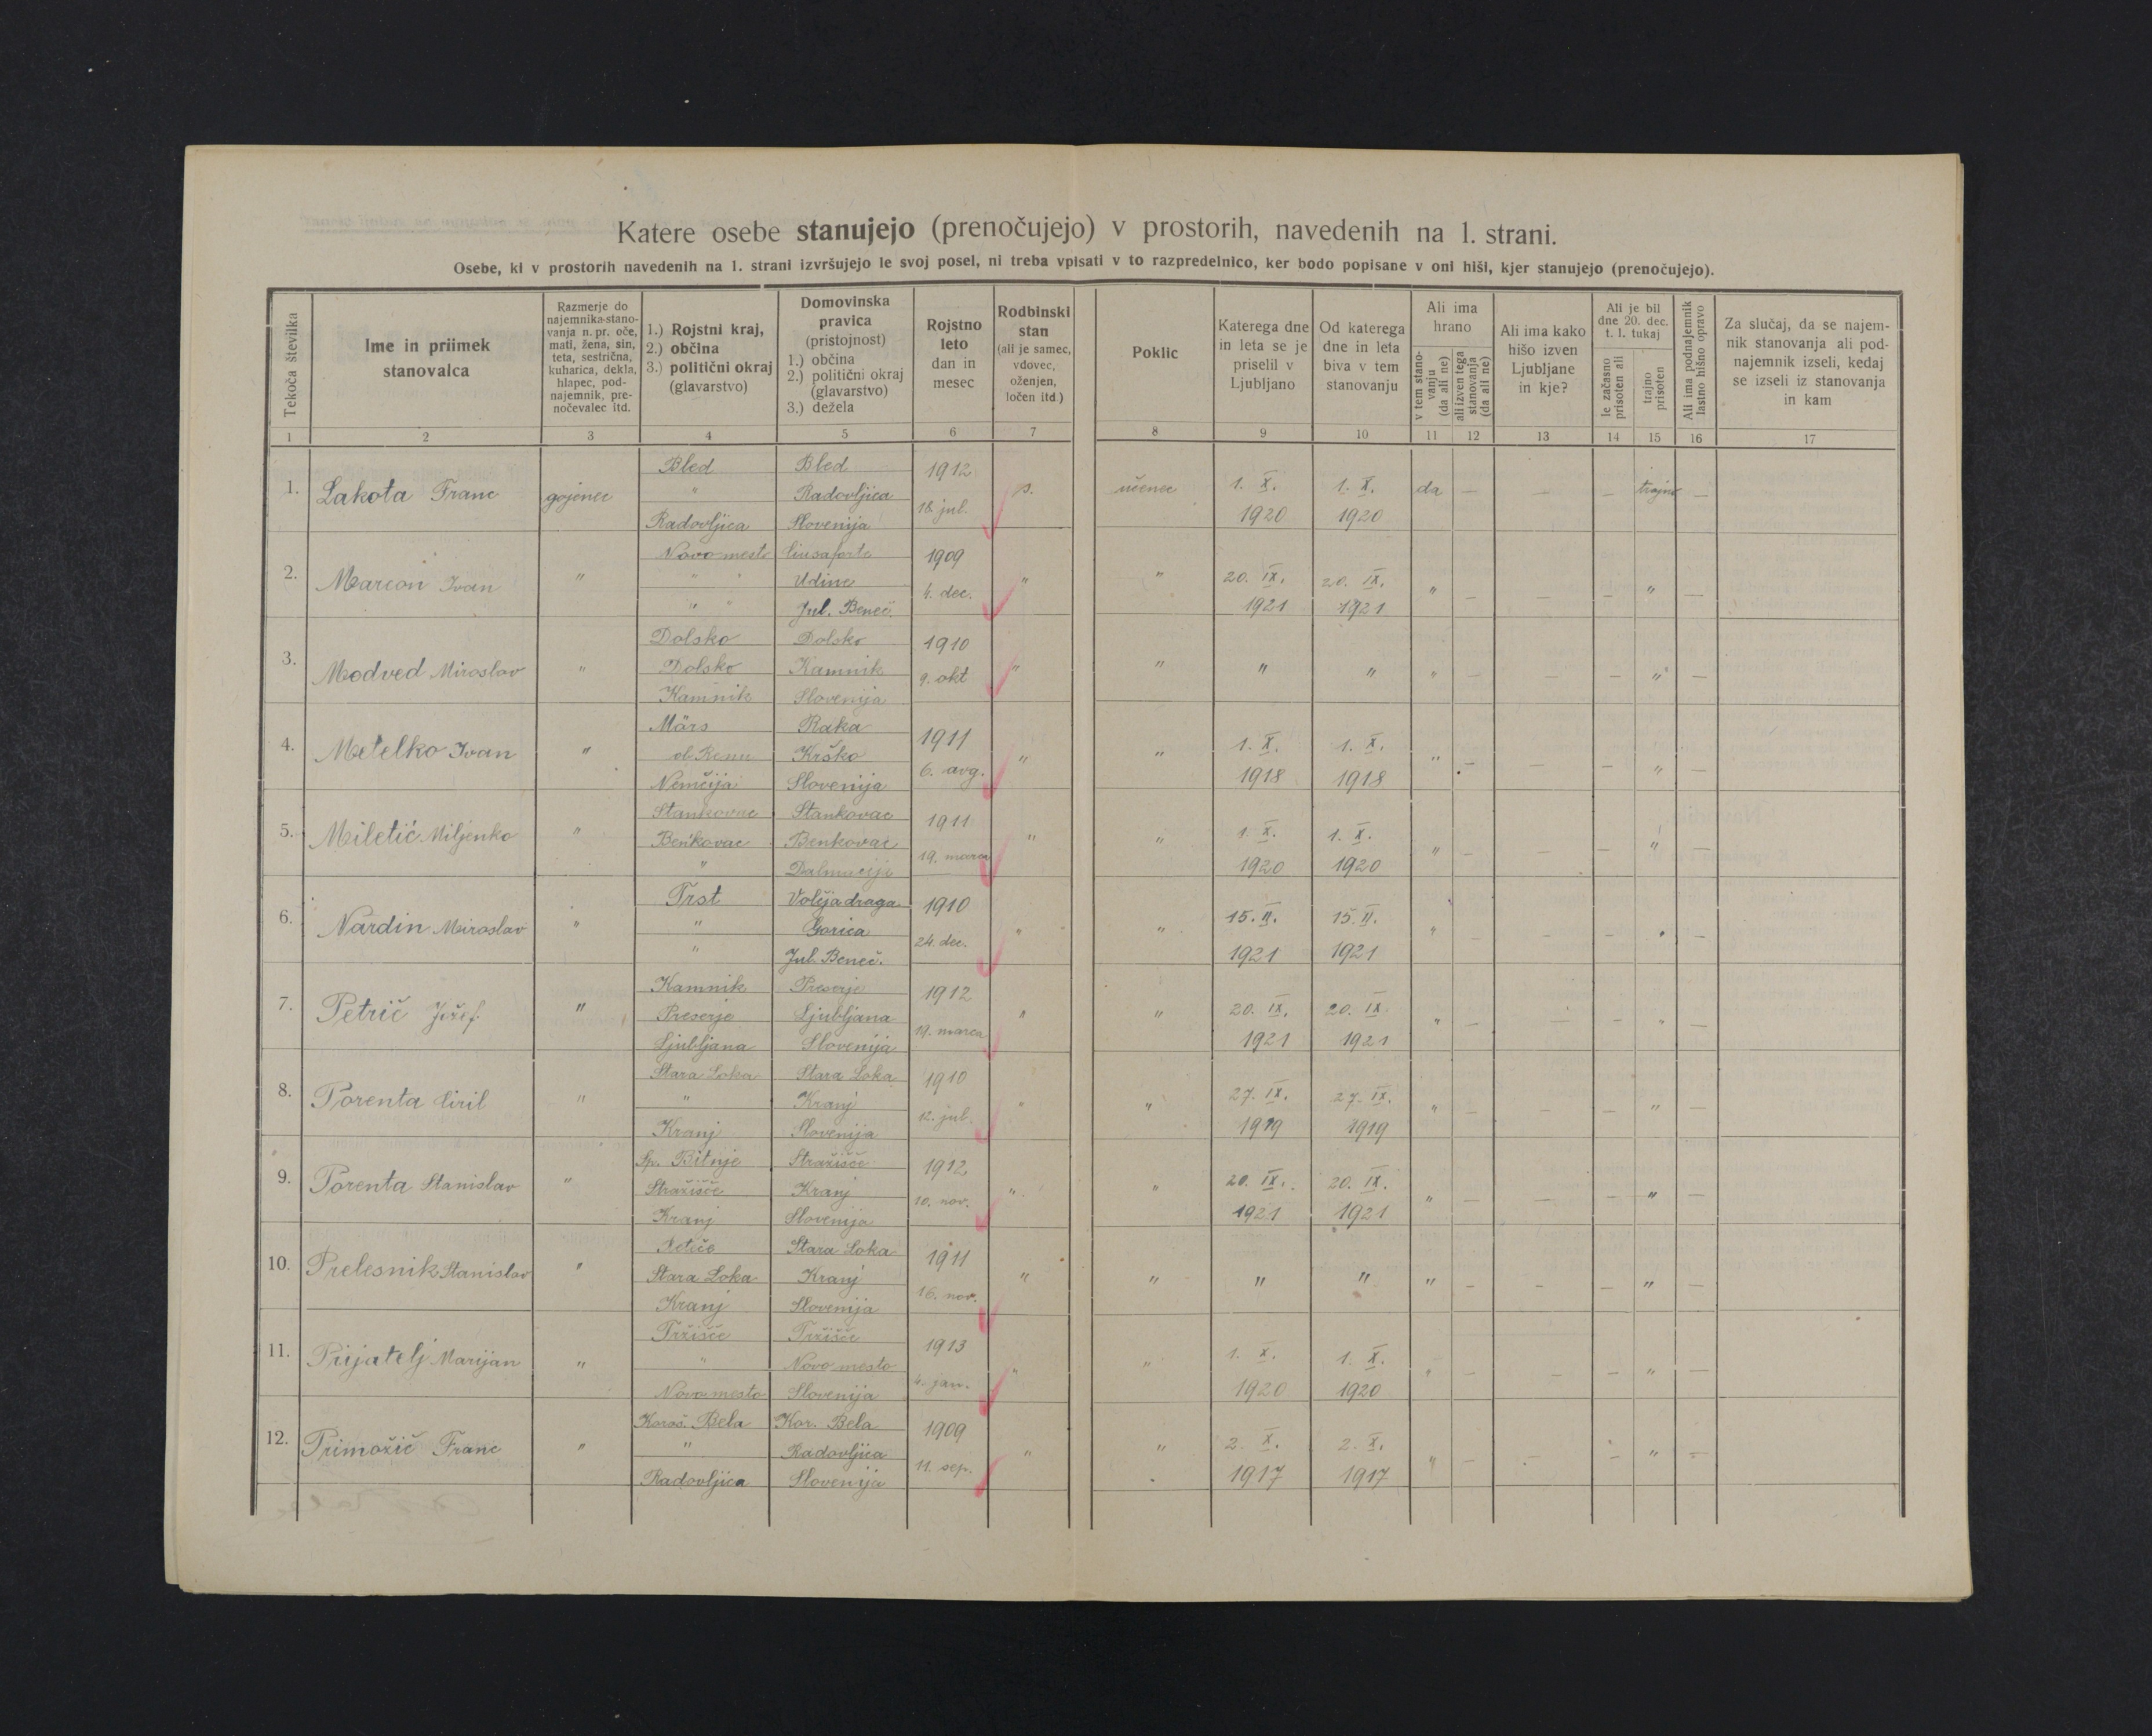 Katere osebe stanujejo (prenočujejo) v prostorih, navedenih na 1. strani.
Osebe, ki v prostorih navedenih na 1. strani izvršujejo le svoj posel, ni treba vpisati v to razpredelnico, ker bodo popisane v oni hiši, kjer stanujejo (prenočujejo).
Tekoča številka
Ime in priimek stanovalca
Razmerje do najemnika-stanovanja n. pr. oče, mati, žena, sin, teta, sestrična, kuharica, dekla, hlapec, podnajemnik, prenočevalec itd.
1.) Rojstni kraj,
2.) občina
3.) politični okraj (glavarstvo)
Domovinska pravica (pristojnost)
1.) občina
2.) politični okraj (glavarstvo)
3.) dežela
Rojstno leto dan in mesec
Rodbinski stan (ali je samec, vdovec, oženjen, ločen itd.)
Poklic
Katerega dne in leta se je priselil v Ljubljano
Od katerega dne in leta biva v tem stanovanju
Ali ima hrano
v tem stanovanju (da ali ne)
ali izven tega stanovanja (da ali ne)
Ali ima kako hišo izven Ljubljane in kje?
Ali je bil dne 20. dec. t. l. tukaj
le začasno prisoten ali
trajno prisoten
Ali ima podnajemnik lastno hišno opravo
Za slučaj, da se najemnik stanovanja ali podnajemnik izseli, kedaj se izseli iz stanovanja in kam
1 2 3 4 5 6 7 8 9 10 11 12 13 14 15 16 17
Bled Bled 1912
1. Lakota Franc gojenec " Radovljica p. učenec 1. X. 1. X. da — — — trajno —
Radovljica Slovenija 18. jul. 1920 1920
Novo mesto Ciusaforte 1909
2. Marcon Ivan " " " Udine " " 20. IX. 20. IX. " — — — " —
" " Jul. Beneč. 4. dec. 1921 1921
Dolsko Dolsko 1910
3. Medved Miroslav " Dolsko Kamnik " " " " " — — — " —
Kamnik Slovenija 9. okt
Märs Raka 1911
4. Metelko Ivan " Krško " " 1. X. 1. X. " — — — " —
Nemčija Slovenija 6. avg. 1918 1918
Stankovac Stankovac 1911
5. Miletić Miljenko " Benkovac Benkovac " " 1. X. 1. X. " — — — " —
" Dalmacija 19. marca 1920 1920
Trst Volčja draga 1910
6. Nardin Miroslav " " Gorica " " 15. II. 15. II. " — — — " —
" Jul. Beneč. 24. dec. 1921 1921
Kamnik Preserje 1912
7. Petrič Jožef " Preserje Ljubljana " " 20. IX. 20. IX. " — — — " —
Ljubljana Slovenija 19. marca 1921 1921
Stara Loka Stara Loka 1910
8. Porenta Ciril " " Kranj " " 27. IX. 27. IX. " — — — " —
Kranj Slovenija 12. jul. 1919 1919
Sp. Bitnje Stražišče 1912
9. Porenta Stanislav " Stražišče Kranj " " 20. IX. 20. IX. " — — — " —
Kranj Slovenija 10. nov. 1921 1921
Reteče Stara Loka 1911
10. Prelesnik Stanislav " Stara Loka Kranj " " " " " — — — " —
Kranj Slovenija 16. nov.
Tržišče Tržišče 1913
11. Prijatelj Marijan " " Novo mesto " " 1. X. 1. X. " — — — " —
Novo mesto Slovenija 4. jan. 1920 1920
Koroš. Bela Kor. Bela 1909
12. Primožič Franc " " Radovljica " " 2. X. 2. X. " — — — " —
Radovljica Slovenija 11. sep. 1917 1917